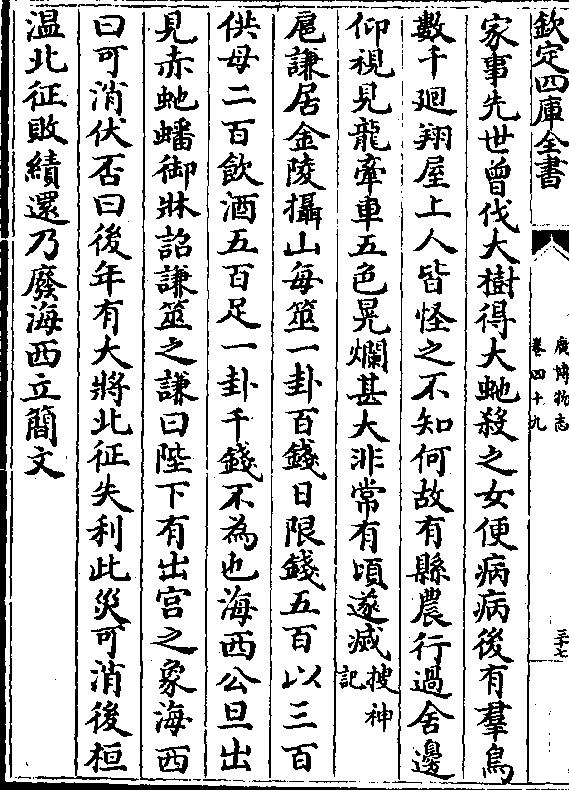 欽定四庫全書
廣博物志
卷四十九
三十七
家事先世曾伐大樹得大虵殺之女便病病後有羣鳥
數千廻翔屋上人皆怪之不知何故有縣農行過舍邊
仰視見龍牽車五色晃爛甚大非常有頃遂滅搜神記
扈謙居金陵攝山每筮一卦百錢日限錢五百以三百
供母二百飲酒五百足一卦千錢不為也海西公旦出
見赤虵蟠御牀詔謙筮之謙曰陛下有出宫之象海西
曰可消伏否曰後年有大將北征失利此災可消後桓
温北征敗績還乃廢海西立簡文